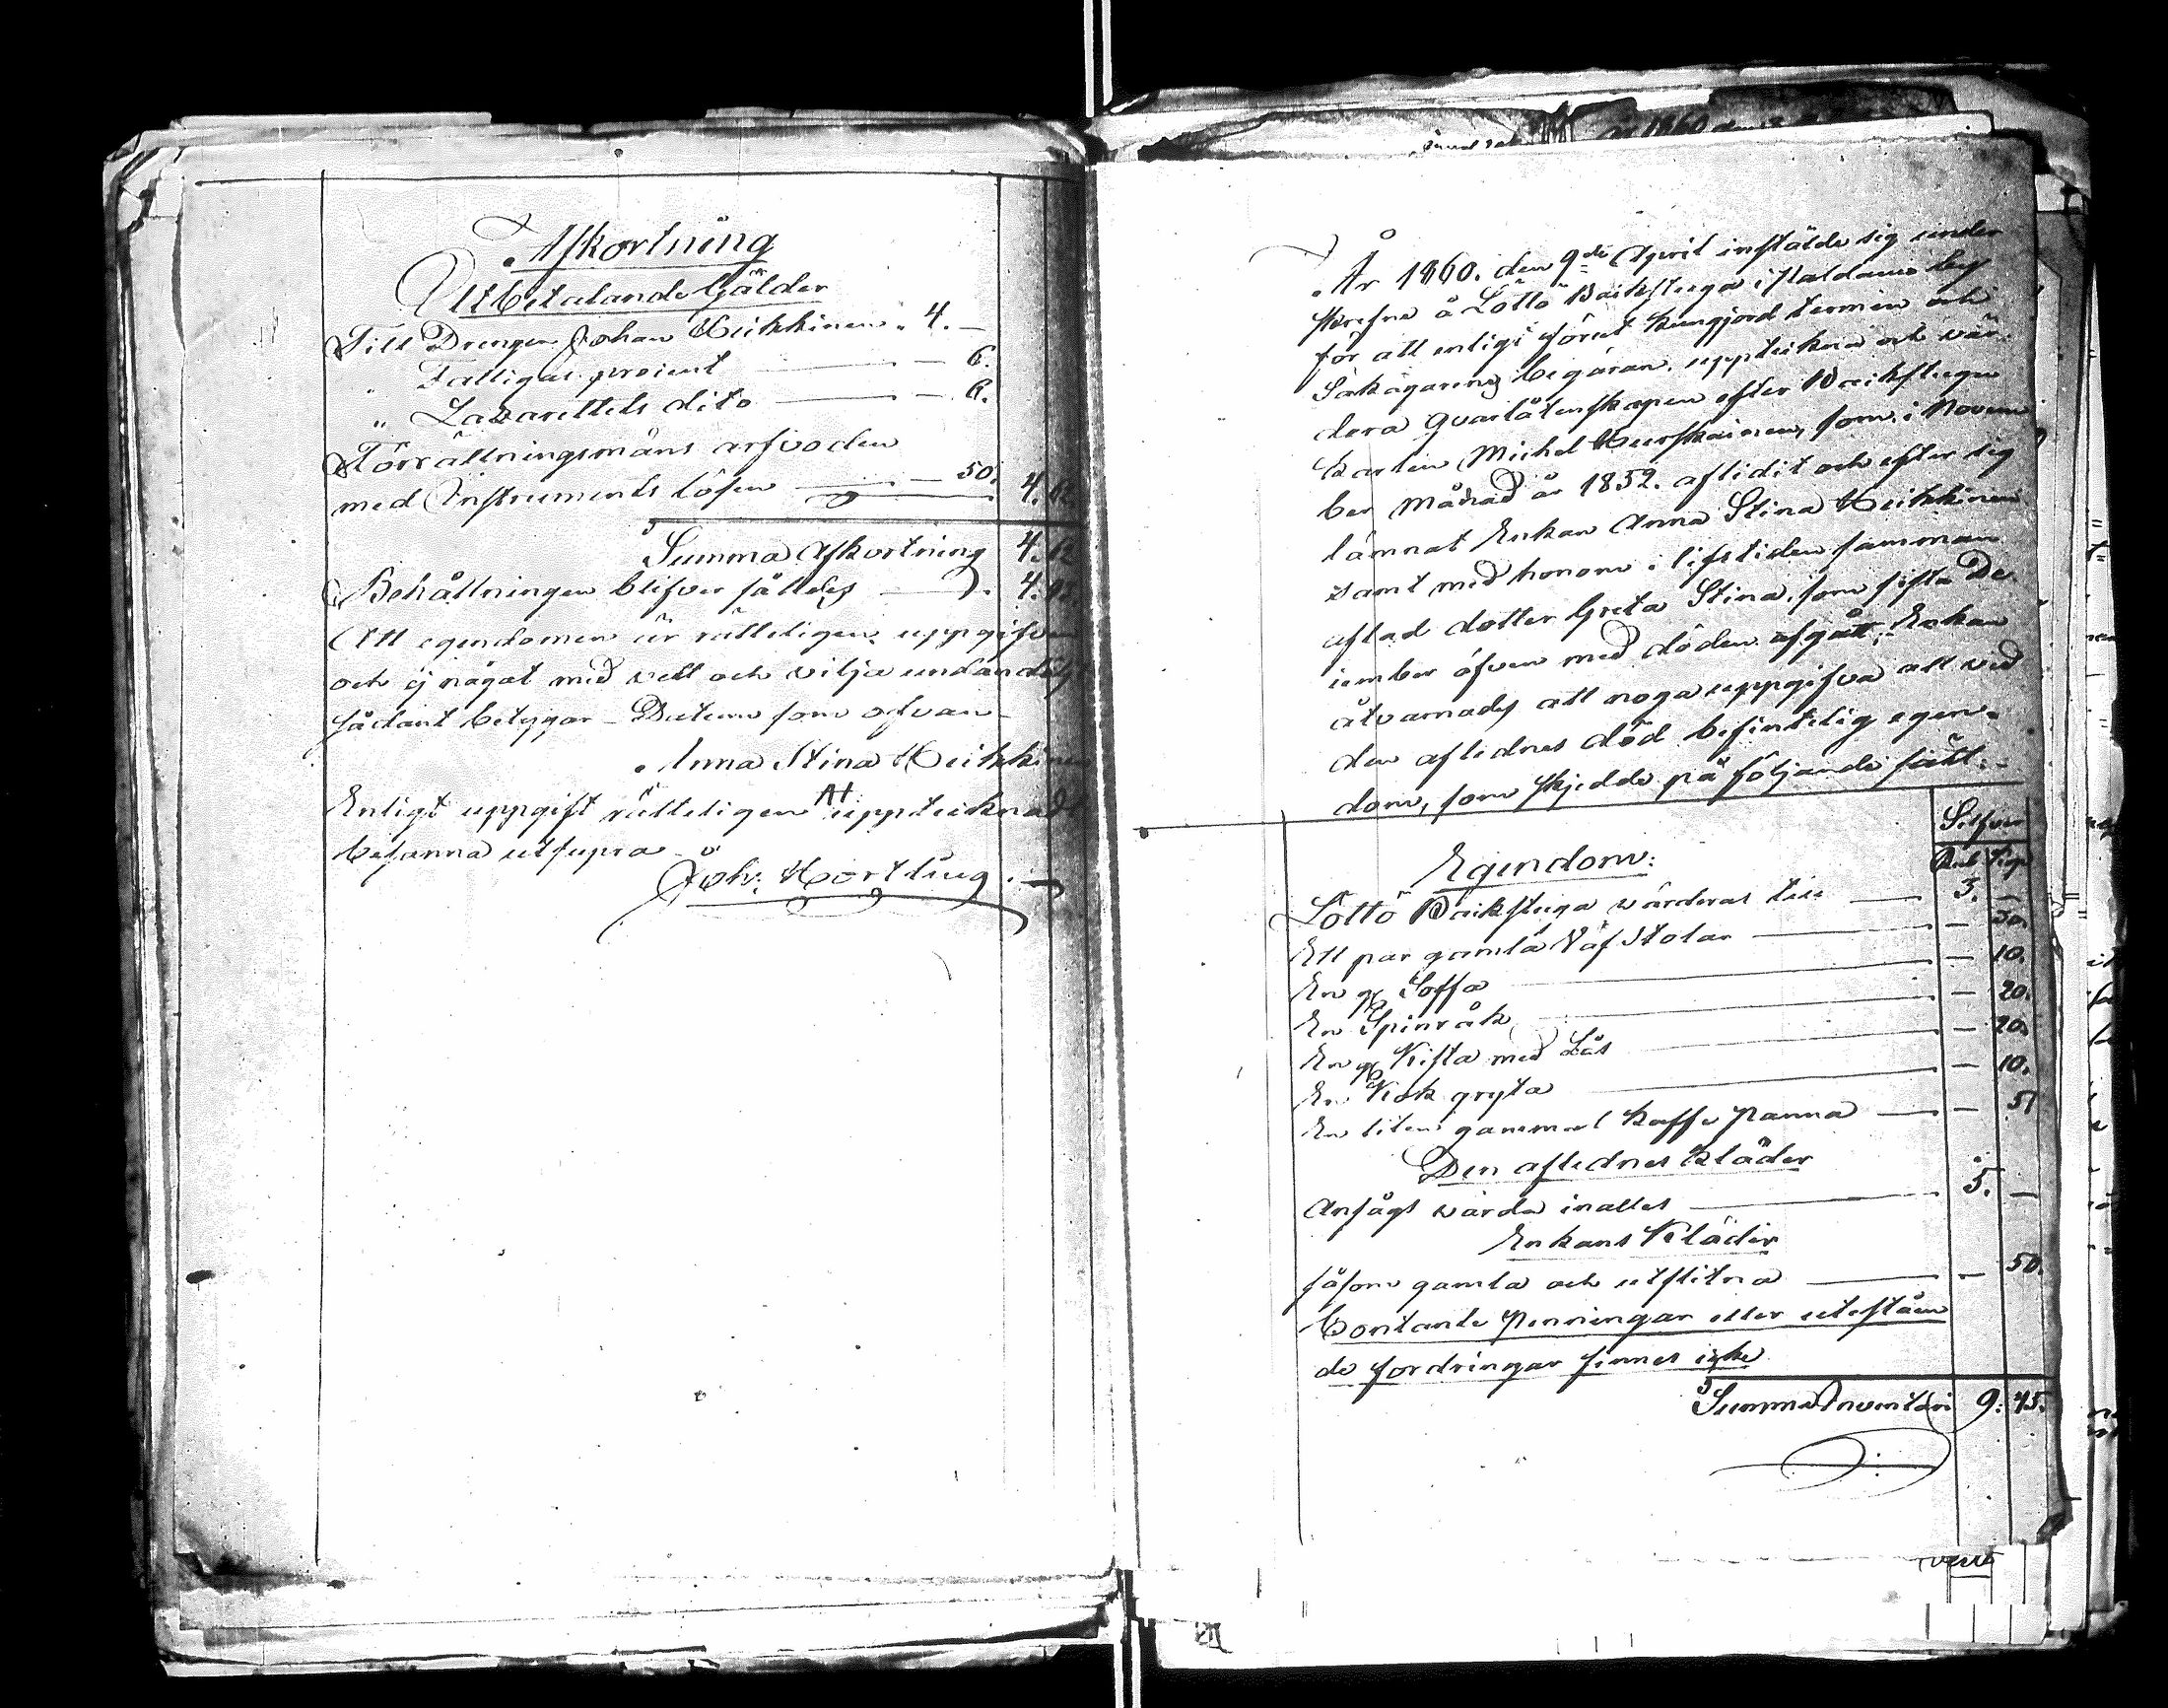 Afkortning
Utbetalande Gälder
Till Drengen Johan Heikkinen . 4. —
" Fattigas procent — — 6.
" Lazarettets dito — — 6.
Förrättningsmäns arfvoden
med Instruments lösen — — 50. 4. 62
Summa Afkortning 4. 62
Behållningen blifver således — 4.
Att egendomen är rätteligen uppgifven
och ej något med vett och vilja undandölgt
sådant betygar – Datum som ofvan –
Anna Stina Heikkinen
Enligt uppgift rätteligen upptecknadt
befanna utsupra
Joh: Hortling.
År 1860. den 9de April instälde sig under
skrefne å Löttö Backstuga i Kaldamo by
för att enligt förut kungjord termin och
Sakägarens begäran, uppteckna och vär-
dera qvarlåtenskapen efter Backstugu
Karlen Michel Hurskainen, som i Novem
ber Månad år 1852. aflidit och efter sig
lämnat Enkan Anna Stina Heikkinen
samt med honom i lifstiden samman
aflad dotter Greta Stina, som sista De-
cember äfven med döden afgått; Enkan
åtvarnades att noga uppgifva all ved
den aflidnes död befintelig egen-
dom, som skjedde på följande sätt:-
Silfver
Egendom: Rub Kop
Löttö Backstuga värderas till — 3. —
Ett par gamla Väf Stolar — — 30.
En gl Soffa — — 10.
En Spinråk — — 20.
En gl Kista med Lås — — 20.
En Kok gryta — — 10.
En liten gammal Kaffe Panna — — 5
Den aflednes Kläder
Ansågs värda inalles — 5. —
Enkans Kläder
såsom gamla och utslitna — — 50.
Contante Penningar eller uteståen
de fordringar finnes icke
Summa Inventari 9. 45.